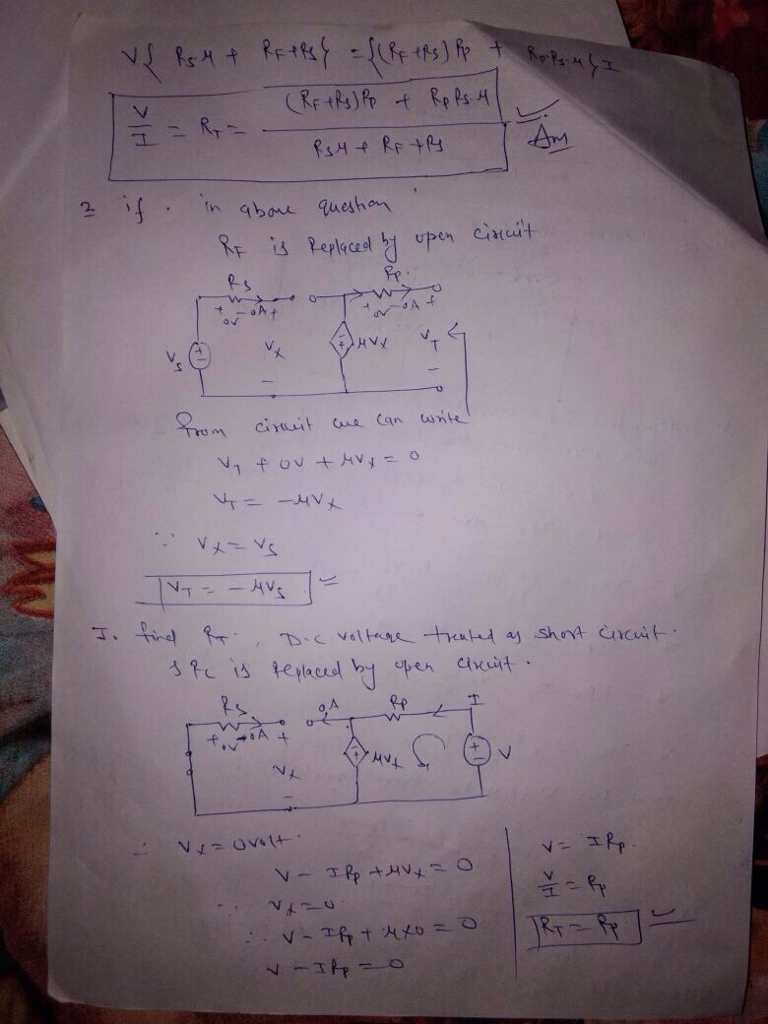 V{ RS.μ + RF+RS} = {(RF+RS) RP + RPRS.μ} I
V/I = RT = (RF+RS)RP + RPRS.μ / RSμ + RF+RS Ans
2 if . in above question
RF is Replaced by open circuit
RS RP.
+ 0V - 0A + + 0V - 0A +
VS + - Vx - - + μVx VT -
from circuit we can write
VT + 0V + μVx = 0
VT = -μVx
∵ Vx = VS
VT = - μVS
I. find RT. , D.C voltage treated as short circuit.
is replaced by open circuit.
RS 0A RP I
+ 0V 0A +
Vx - + μVx + - V
∴ Vx = 0 volt.
V - IRP + μVx = 0
∵ Vx = 0
∴ V - IRP + μx0 = 0
V - IRP = 0
V = IRP.
V/I = RP
RT = RP.